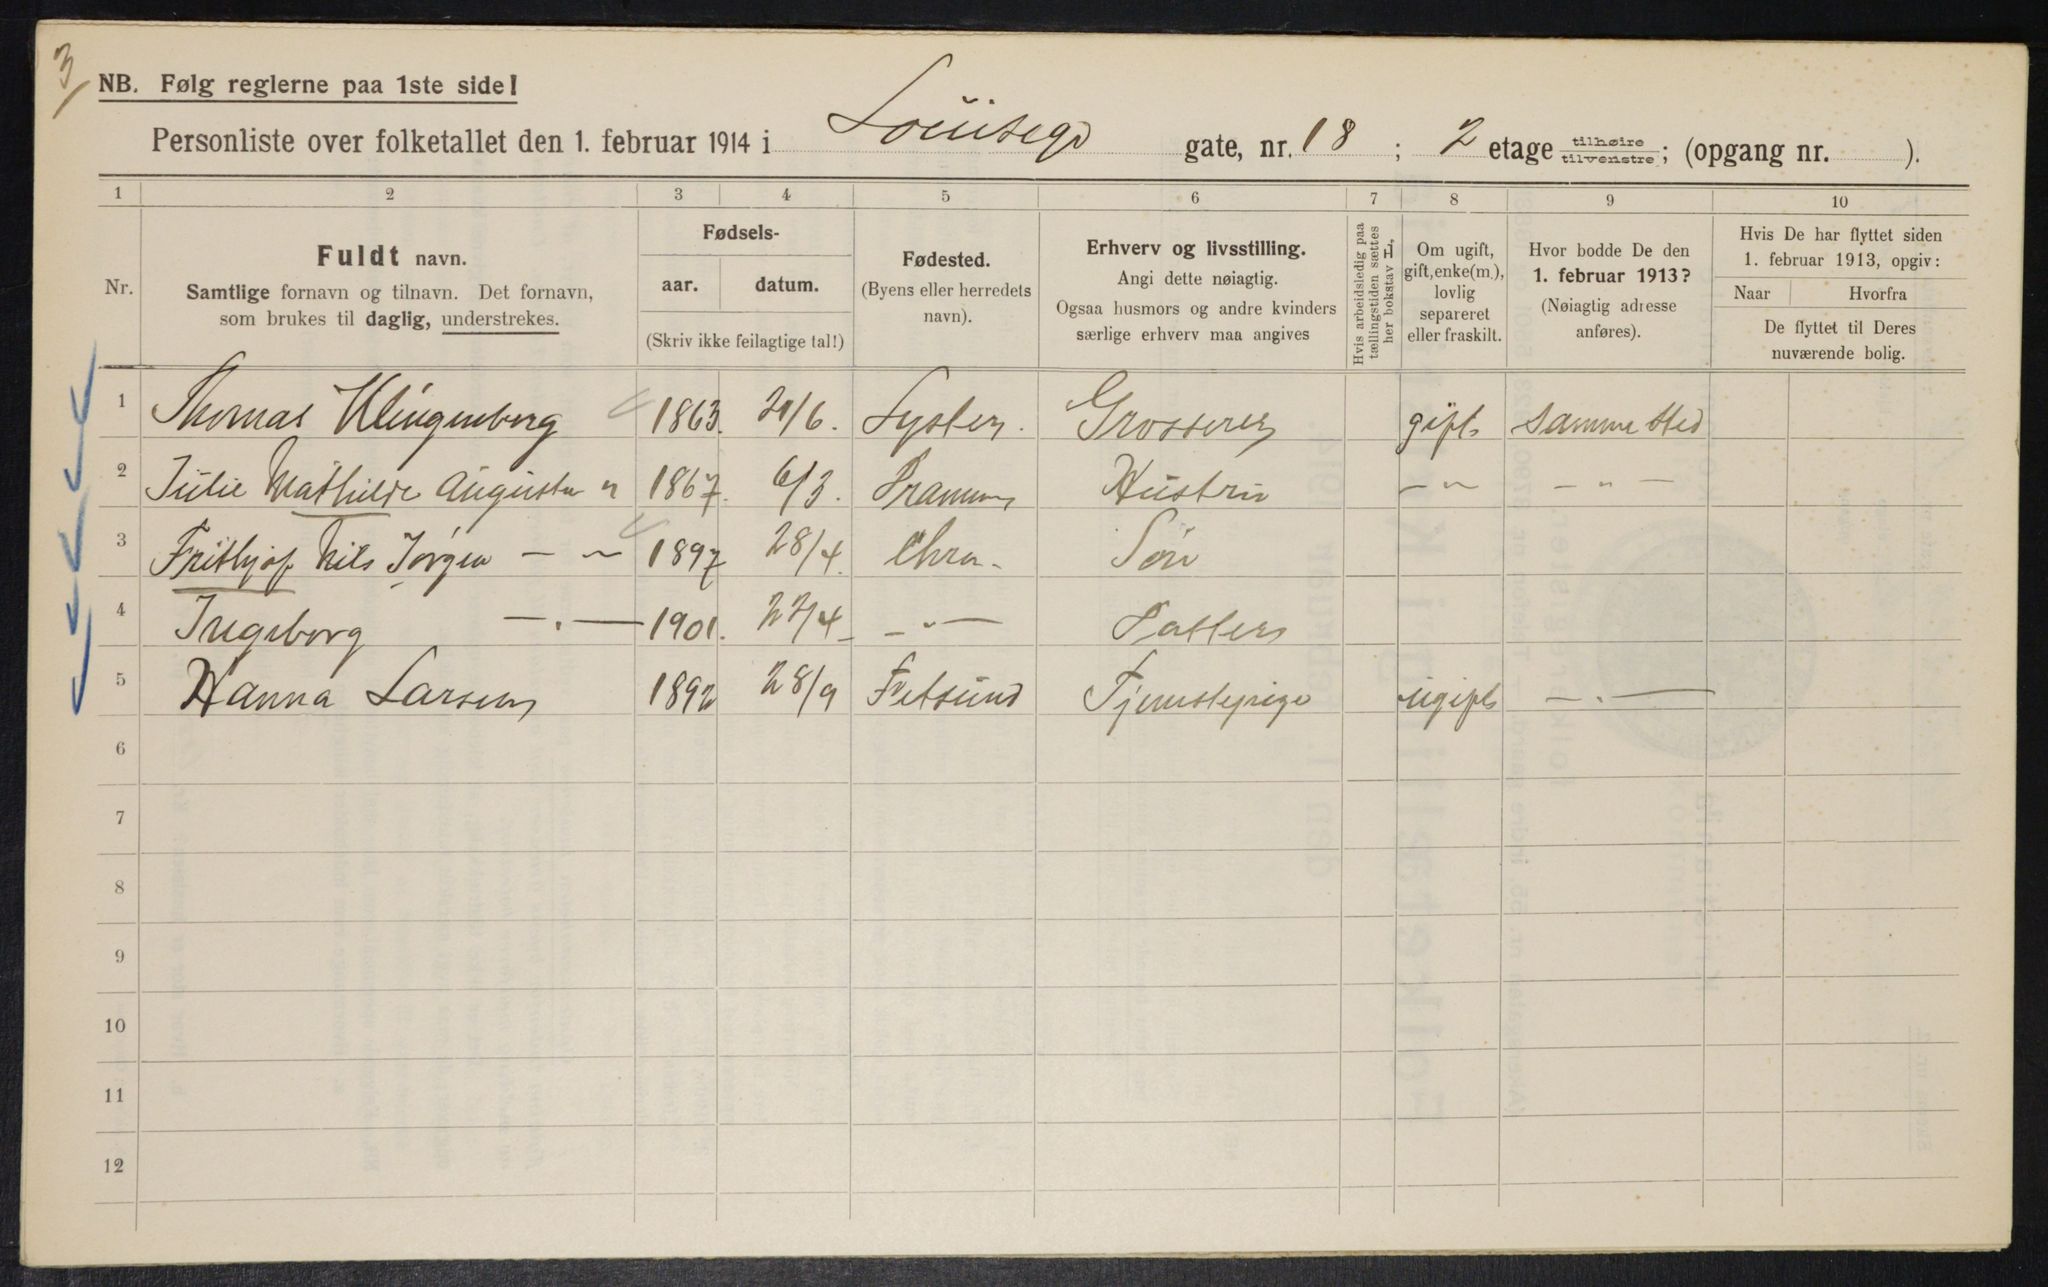 3
NB. Følg reglerne paa 1ste side!
Personliste over folketallet den 1. februar 1914 i Louisegd gate, nr. 18 ; 2 etage tilhøire/tilvenstre; (opgang nr. ).
1 2 3 4 5 6 7 8 9 10
Nr.
Fuldt navn.
Samtlige fornavn og tilnavn. Det fornavn,
som brukes til daglig, understrekes.
Fødsels-
aar. datum.
(Skriv ikke feilagtige tal!)
Fødested.
(Byens eller herredets
navn).
Erhverv og livsstilling.
Angi dette nøiagtig.
Ogsaa husmors og andre kvinders
særlige erhverv maa angives
Hvis arbeidsledig paa
tællingstiden sættes
her bokstav L,
Om ugift,
gift, enke(m.),
lovlig
separeret
eller fraskilt.
Hvor bodde De den
1. februar 1913?
(Nøiagtig adresse
anføres).
Hvis De har flyttet siden
1. februar 1913, opgiv:
Naar Hvorfra
De flyttet til Deres
nuværende bolig.
1 Thomas Klingenberg 1863. /6. Lyster. Grosserer gift samme sted
2 Julie Mathilde Augusta " 1867. 6/3. Drammen Hustru - " - - " -
3 Frithjof Nils Jørgen - " 1897 28/4. Chra. Søn
4 Ingeborg - " - 1901. 22/4 - " - Datter
5 Hanna Larsen 1892 28/9 Fetsund Tjenestepige ugift - " -
6
7
8
9
10
11
12